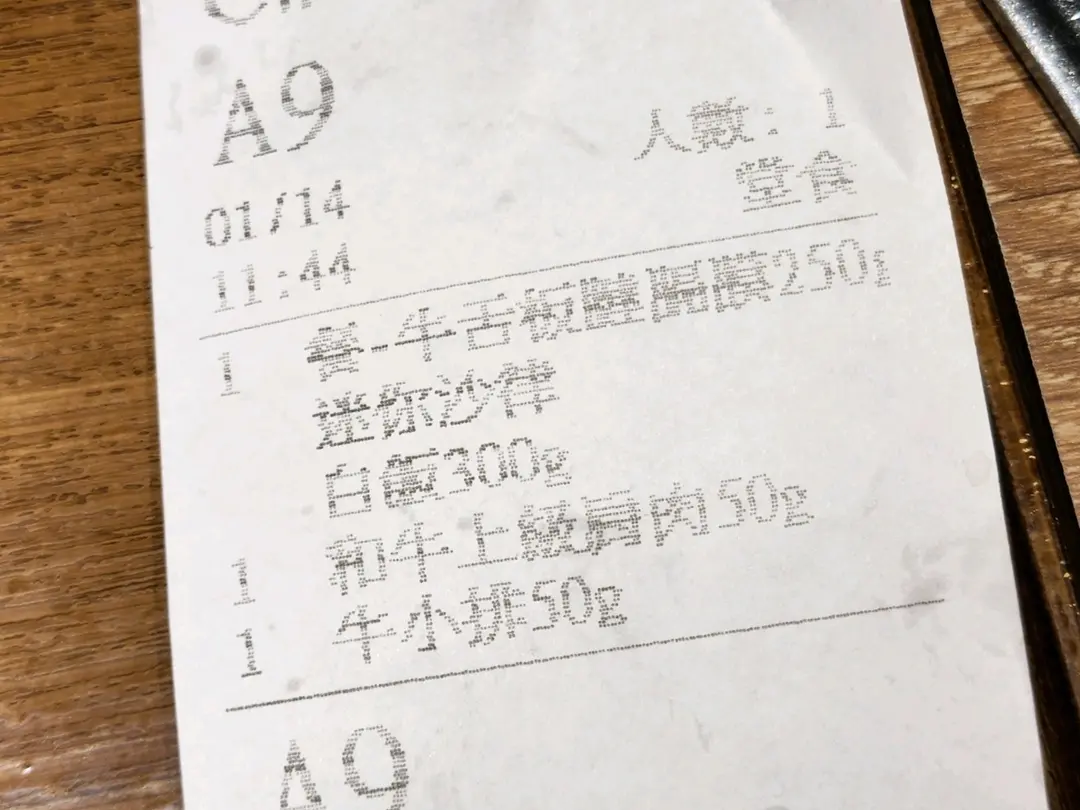 A9
人數：1
01/14
堂食
11:44
1 餐-牛舌板腱橫膈膜250g
迷你沙律
白飯300g
1 和牛上級肩肉50g
1 牛小排50g
A9